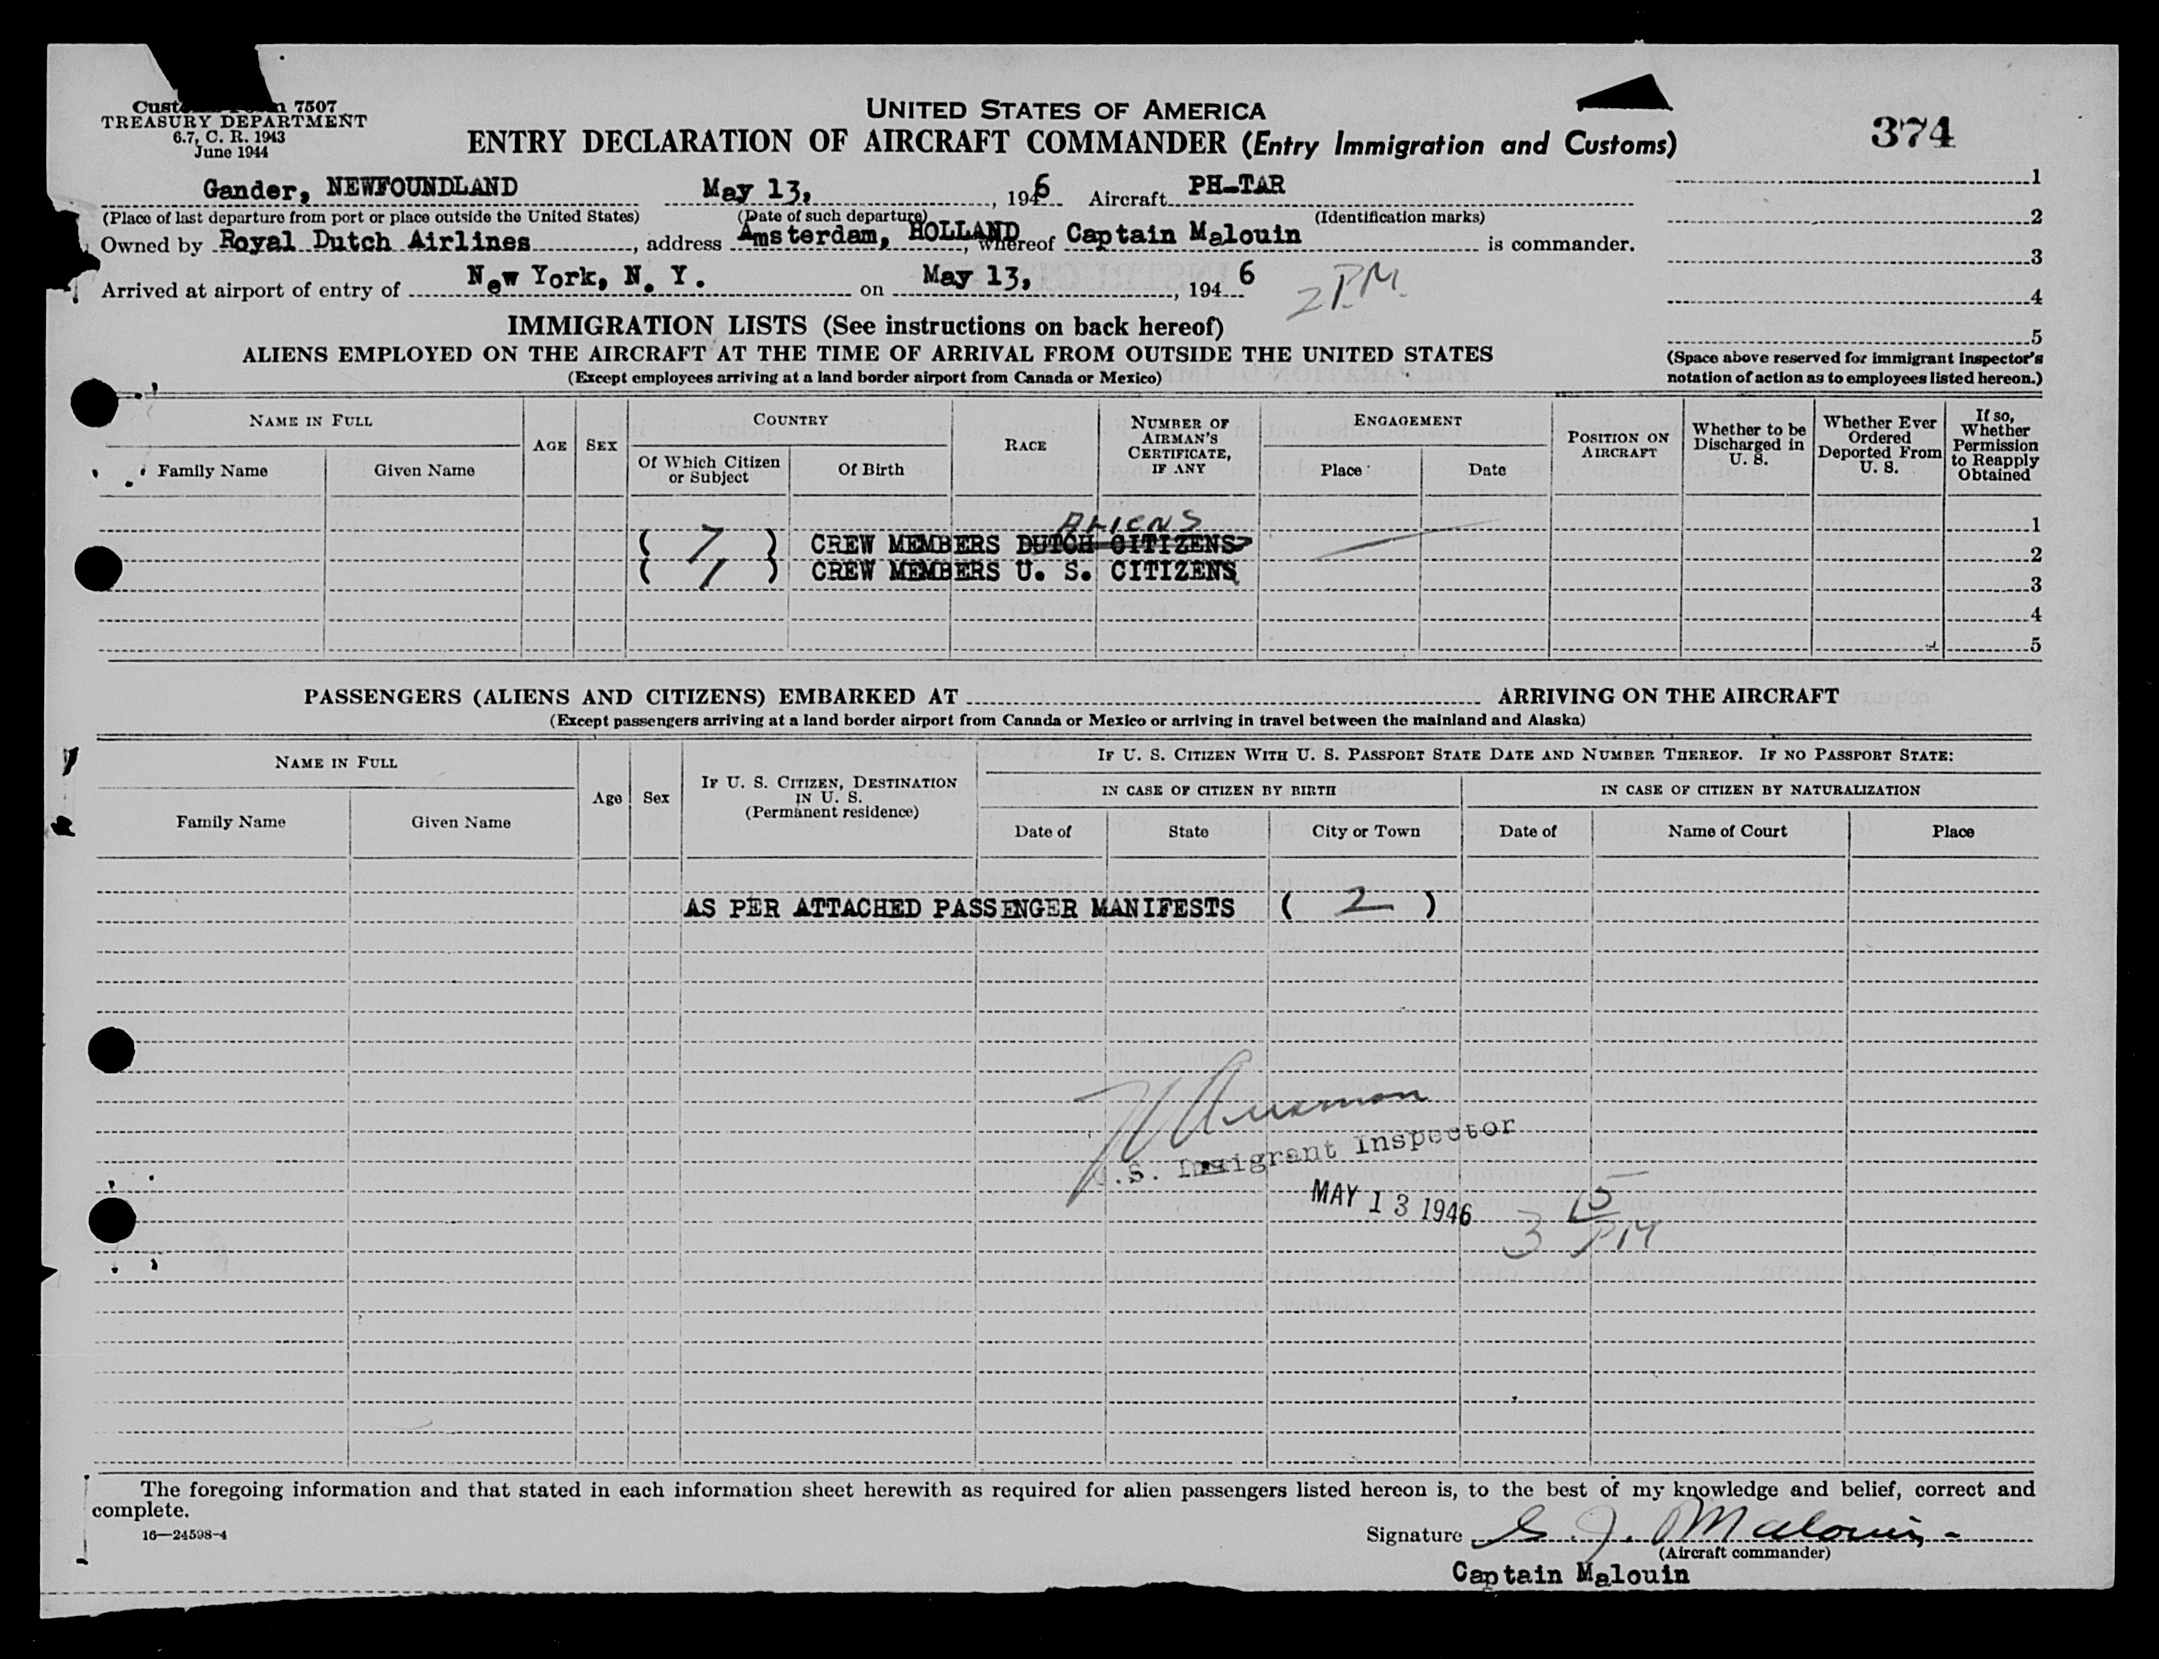 7507
TREASURY DEPARTMENT
6.7, C. R. 1943
June 1944
UNITED STATES OF AMERICA
ENTRY DECLARATION OF AIRCRAFT COMMANDER (Entry Immigration and Customs)
374
Gander, NEWFOUNDLAND May 13, , 1946 Aircraft PH-TAR
(Place of last departure from port or place outside the United States) (Date of such departure) (Identification marks)
Owned by Royal Dutch Airlines, address Amsterdam, HOLLAND, whereof Captain Malouin is commander.
Arrived at airport of entry of New York, N. Y. on May 13, , 1946 2 PM
1
2
3
4
5
(Space above reserved for immigrant inspector's
notation of action as to employees listed hereon.)
IMMIGRATION LISTS (See instructions on back hereof)
ALIENS EMPLOYED ON THE AIRCRAFT AT THE TIME OF ARRIVAL FROM OUTSIDE THE UNITED STATES
(Except employees arriving at a land border airport from Canada or Mexico)
NAME IN FULL
Family Name
Given Name
AGE
SEX
COUNTRY
Of Which Citizen
or Subject
Of Birth
RACE
NUMBER OF
AIRMAN'S
CERTIFICATE,
IF ANY
ENGAGEMENT
Place
Date
POSITION ON
AIRCRAFT
Whether to be
Discharged in
U. S.
Whether Ever
Ordered
Deported From
U. S.
If so,
Whether
Permission
to Reapply
Obtained
ALIENS 1
( 7 ) CREW MEMBERS DUTCH CITIZENS 2
( 1 ) CREW MEMBERS U. S. CITIZENS 3
4
5
PASSENGERS (ALIENS AND CITIZENS) EMBARKED AT ARRIVING ON THE AIRCRAFT
(Except passengers arriving at a land border airport from Canada or Mexico or arriving in travel between the mainland and Alaska)
NAME IN FULL
Family Name
Given Name
Age
Sex
IF U. S. CITIZEN, DESTINATION
IN U. S.
(Permanent residence)
IF U. S. CITIZEN WITH U. S. PASSPORT STATE DATE AND NUMBER THEREOF. IF NO PASSPORT STATE:
IN CASE OF CITIZEN BY BIRTH
IN CASE OF CITIZEN BY NATURALIZATION
Date of
State
City or Town
Date of
Name of Court
Place
AS PER ATTACHED PASSENGER MANIFESTS ( 2 )
.S. Immigrant Inspector
MAY 13 1946
3 15 PM
The foregoing information and that stated in each information sheet herewith as required for alien passengers listed hereon is, to the best of my knowledge and belief, correct and
complete.
16—24598-4
Signature J. Malouin
(Aircraft commander)
Captain Malouin